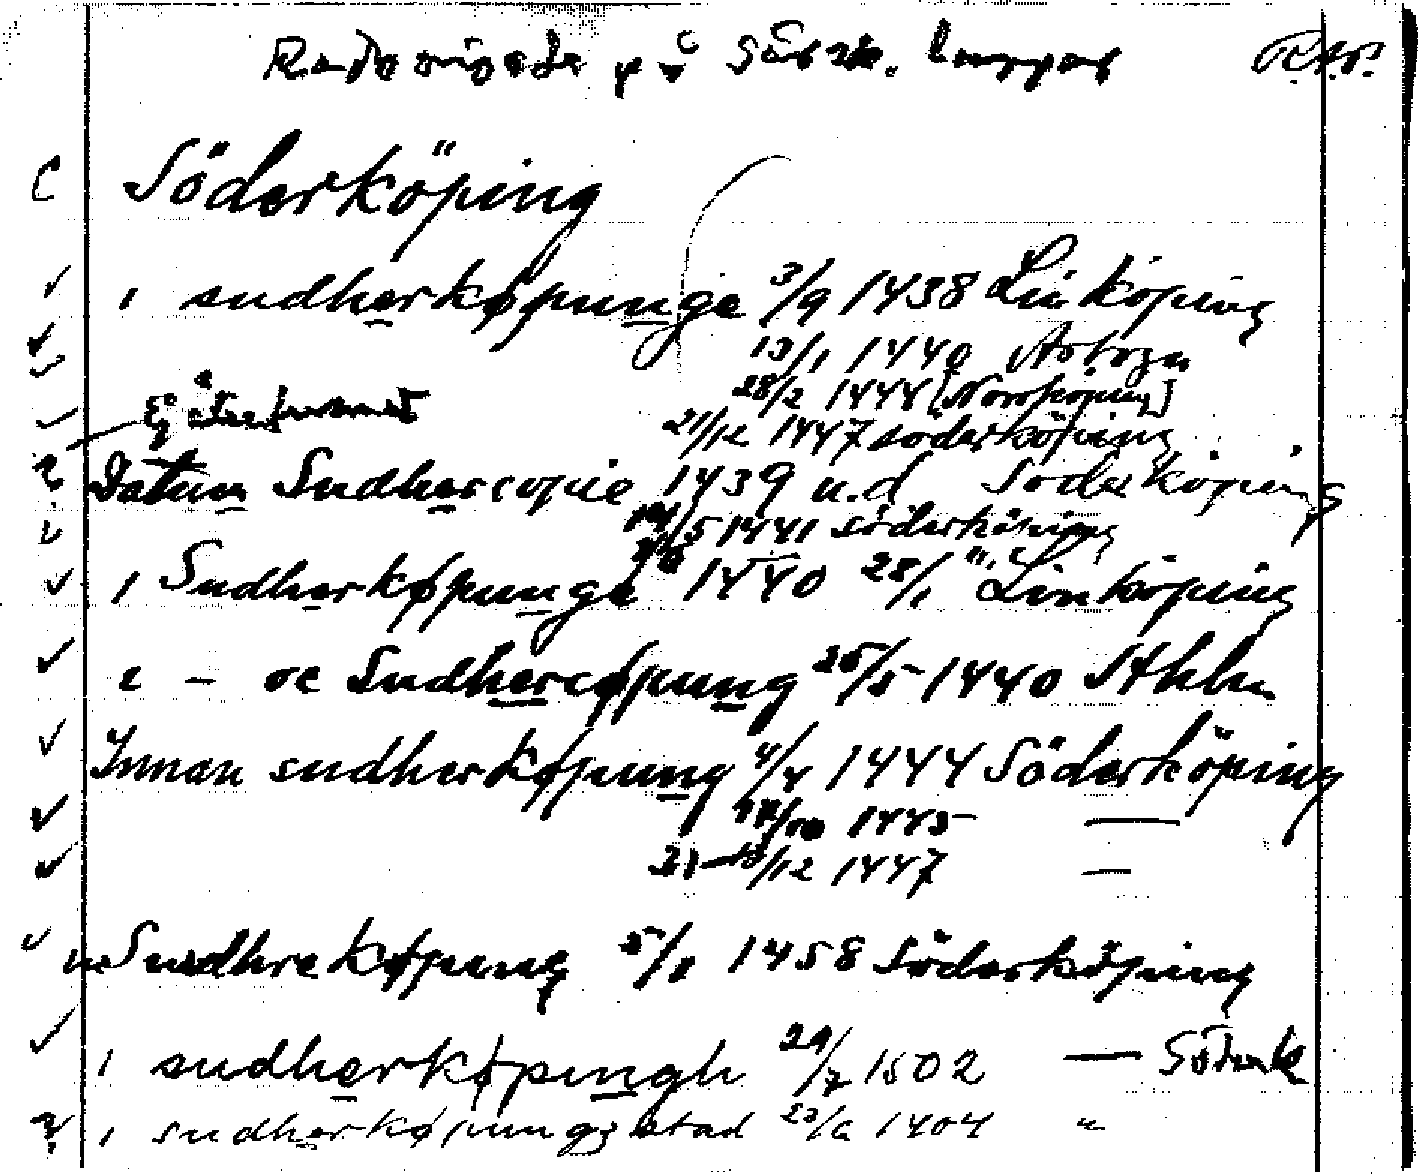 Redovisade på särsk. lappar
C Söderköping
i sudherkøpunge 3/9 1438 Linköping
13/1 1440 Arboga
28/2 1444 [Norrköping]
Ej återfunnet 21/12 1447 söderköping
Datum Sudhercopie 1439 u.d. Söderköping
5 1441 söderköping
i Sudherkøpunge 1440 28/1 Linköping
i - oc Sudhercøpung 25/5 1440 Sthlm
Innan sudherkøpung 4/4 1444 Söderköping
1445 —
12 1447 —
Sudhrekøpung 1458 Söderköping
i sudherkøpungh 29/7 1502 — Söderk
i sudherkøpungs stad 1404 "